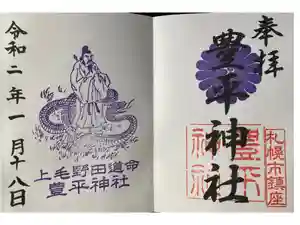 奉拝
豊平神社
札幌市鎮座
豊平神社
令和二年一月十八日
上毛野田道命
豊平神社